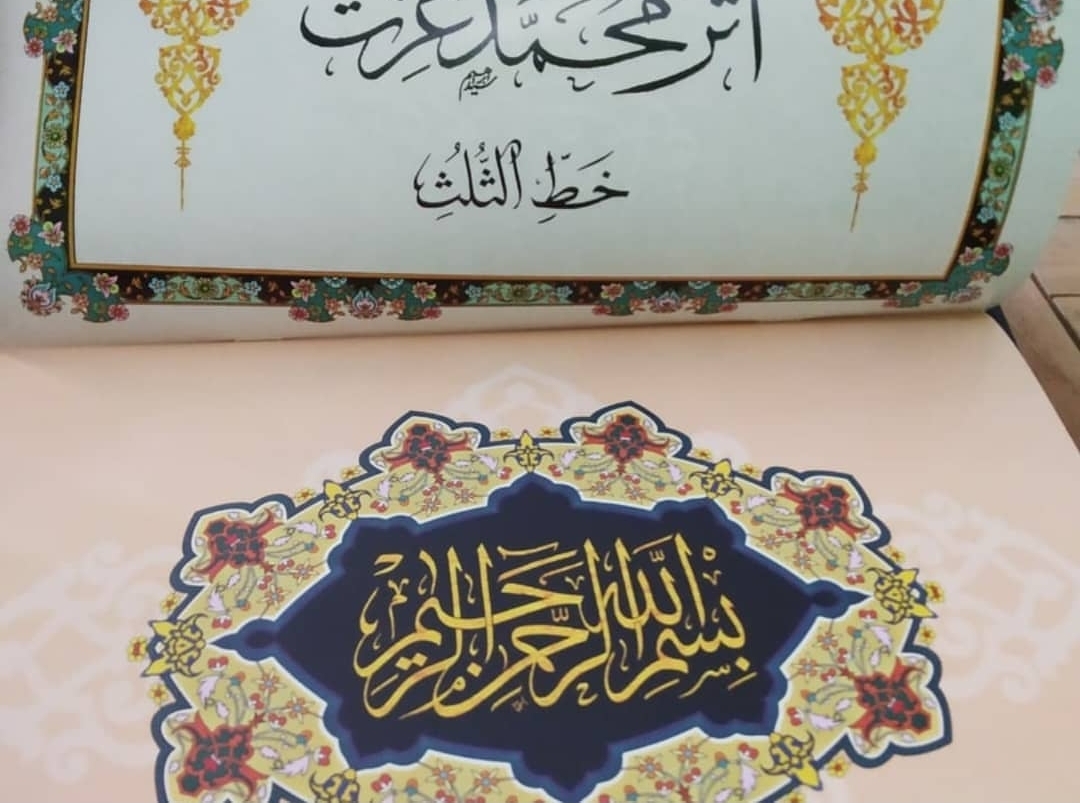 اثر محمد عزت
خَطِّ الثُّلُثِ
بِسْمِ اللّٰهِ الرَّحْمٰنِ الرَّحِيمِ